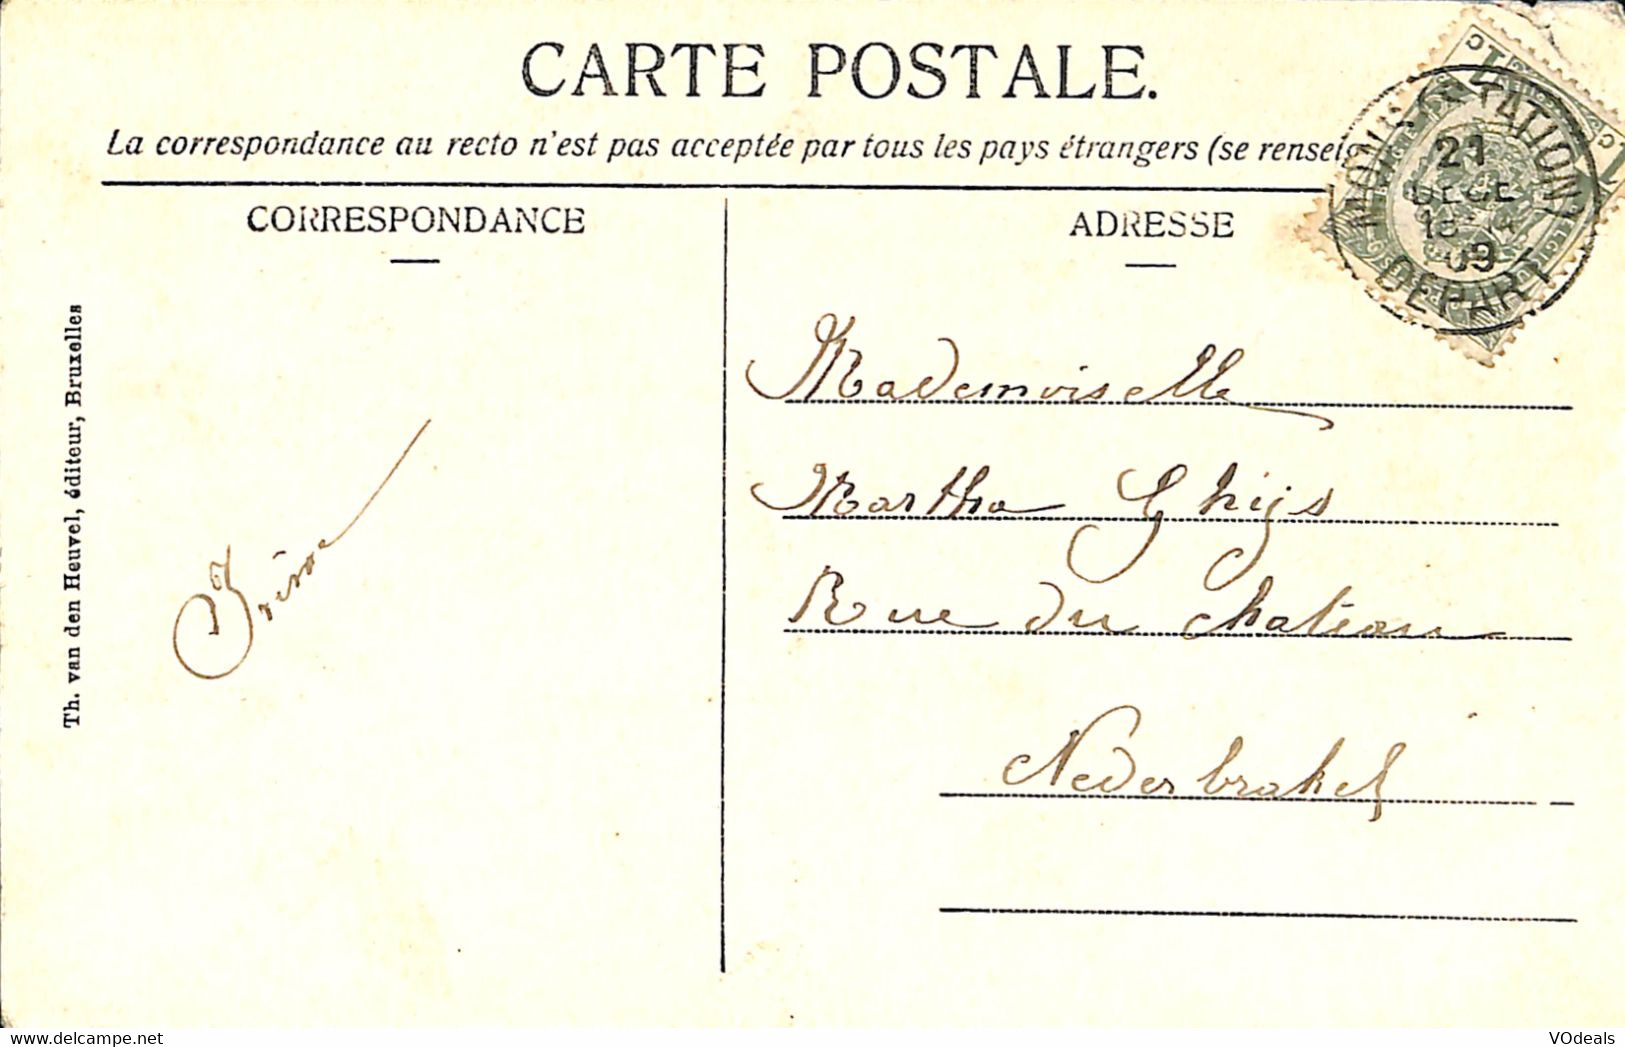 CARTE POSTALE.
La correspondance au recto n'est pas acceptée par tous les pays étrangers (se renseig
CORRESPONDANCE
ADRESSE
MONS (STATION)
21
DECE
09
DEPART
1 C
1 C
Th. van den Heuvel, éditeur, Bruxelles
Mademoiselle
Martha Ghijs
Rue du chateau
Nederbrakel
VOdeals